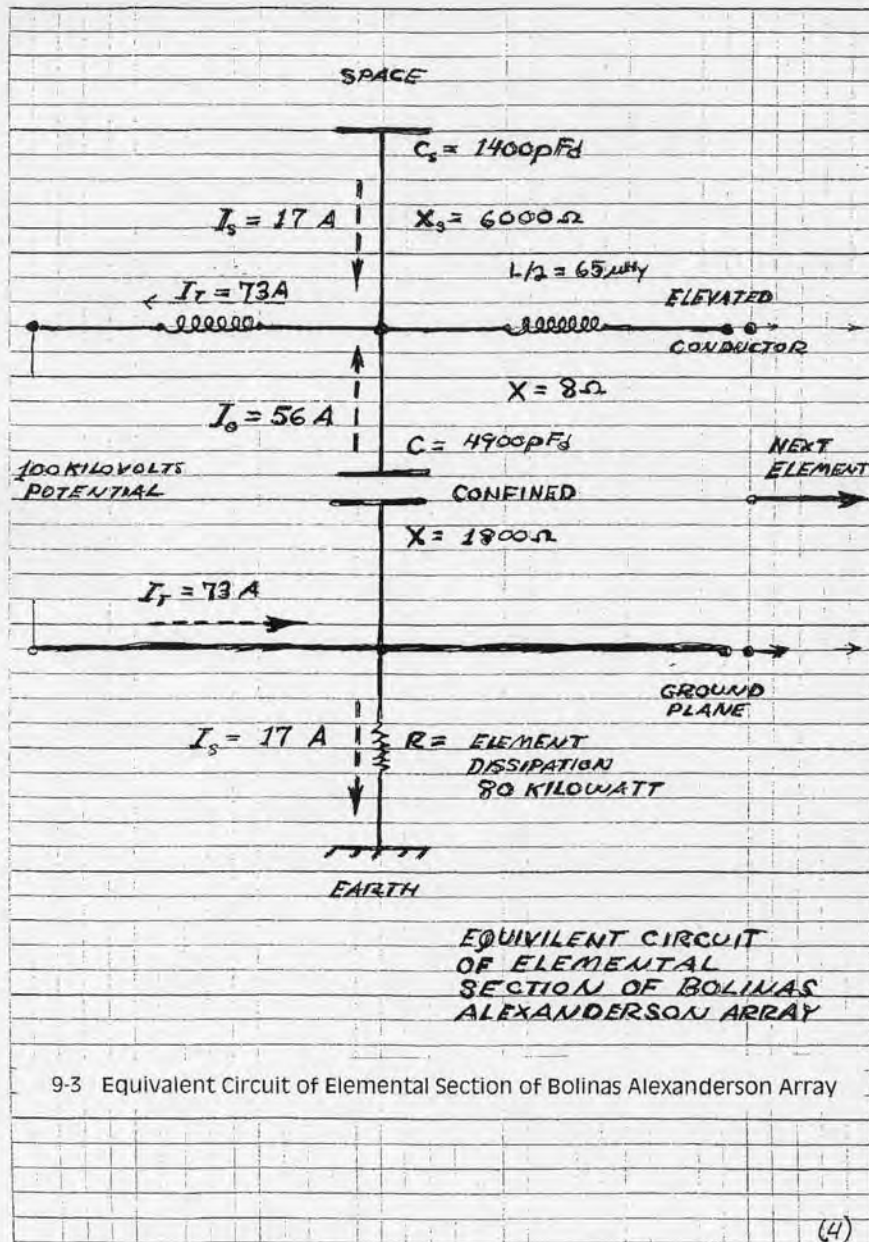 SPACE
Cs = 1400pFd
Is = 17 A
Xs = 6000Ω
L/2 = 65μHy
IT = 73A
ELEVATED
CONDUCTOR
X = 8Ω
Iθ = 56 A
C = 4900pFd
NEXT
ELEMENT
100 KILOVOLTS
POTENTIAL
CONFINED
X = 1800Ω
IT = 73 A
GROUND
PLANE
Is = 17 A
R = ELEMENT
DISSIPATION
80 KILOWATT
EARTH
EQUIVILENT CIRCUIT
OF ELEMENTAL
SECTION OF BOLINAS
ALEXANDERSON ARRAY
9-3 Equivalent Circuit of Elemental Section of Bolinas Alexanderson Array
(4)